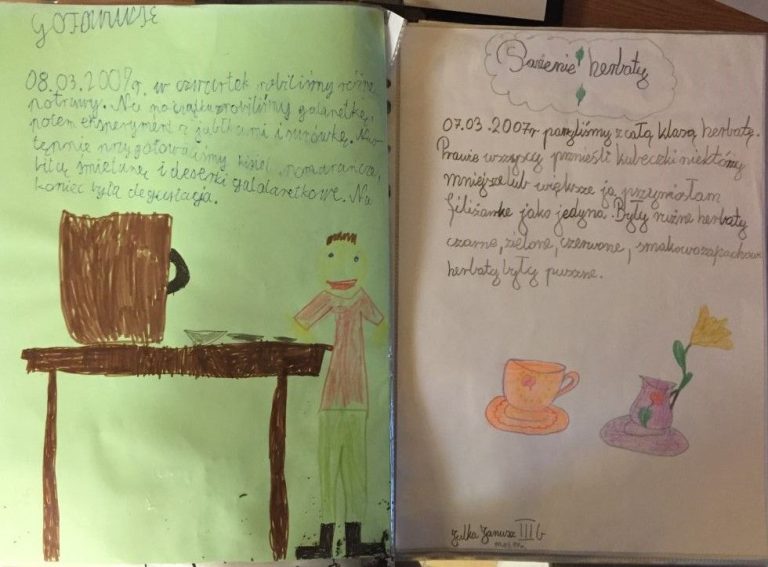 GOTOWANIE
08.03.2007r. w czwartek robiliśmy różne
potrawy. Na początku zrobiliśmy galaretkę,
potem eksperyment z jabłkami i surówkę. Na-
tępnie przygotowaliśmy kisiel z pomarańcza,
bitą śmietanę i deserki galalaretkowe. Na
koniec była degustacja.
Parzenie herbaty
07.03.2007r parzyliśmy z całą klasą herbatę.
Prawie wszyscy przynieśli kubeczki niektórzy
mniejsze lub większe ja przyniosłam
filiżanke jako jedyna. Były różne herbaty
czarne, zielone, czerwone, smakowozapachowe
herbaty były pyszne.
Julka Janusz III b